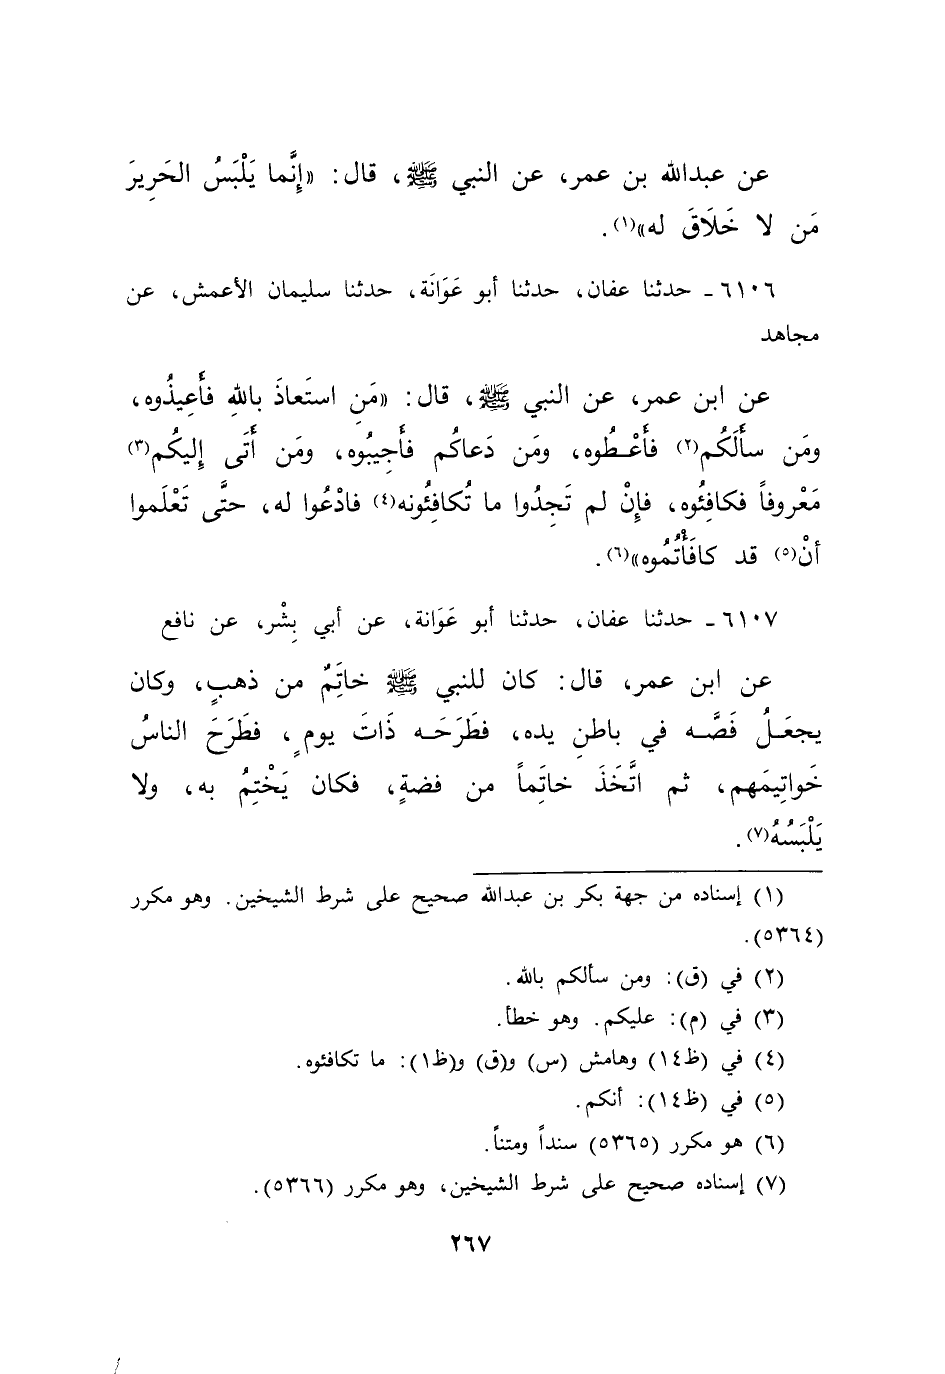 عن عبدالله بن عمر، عن النبي ﷺ، قال: «إِنَّما يَلْبَسُ الحَرِيرَ
مَن لا خَلَاقَ له»(١).
٦١٠٦ـ حدثنا عفان، حدثنا أبو عَوَانَة، حدثنا سليمان الأعمش، عن
مجاهد
عن ابن عمر، عن النبي ﷺ، قال: «مَنِ استَعاذَ باللهِ فأَعِيذُوه،
ومَن سأَلَكُم(٢) فأَعْطُوه، ومَن دَعاكُم فأَجِيبُوه، ومَن أَتَى إِليكُم(٣)
مَعْروفاً فكافِئُوه، فإِنْ لم تَجِدُوا ما تُكافِئُونه(٤) فادْعُوا له، حتَّى تَعْلَموا
أنْ(٥) قد كافَأْتُمُوه»(٦).
٦١٠٧ـ حدثنا عفان، حدثنا أبو عَوَانة، عن أبي بِشْر، عن نافع
عن ابن عمر، قال: كان للنبي ﷺ خاتَمٌ من ذهبٍ، وكان
يجعَـلُ فَصَّـه في باطنِ يده، فطَرَحَـه ذَاتَ يومٍ، فطَرَحَ الناسُ
خَواتِيمَهم، ثم اتَّخَذَ خاتَماً من فضةٍ، فكان يَخْتِمُ به، ولا
يَلْبَسُهُ(٧).
(١) إسناده من جهة بكر بن عبدالله صحيح على شرط الشيخين. وهو مكرر
(٥٣٦٤).
(٢) في (ق): ومن سألكم بالله.
(٣) في (م): عليكم. وهو خطأ.
(٤) في (ظ١٤) وهامش (س) و(ق) و(ظ١): ما تكافئوه.
(٥) في (ظ١٤): أنكم.
(٦) هو مكرر (٥٣٦٥) سنداً ومتناً.
(٧) إسناده صحيح على شرط الشيخين، وهو مكرر (٥٣٦٦).
٢٦٧